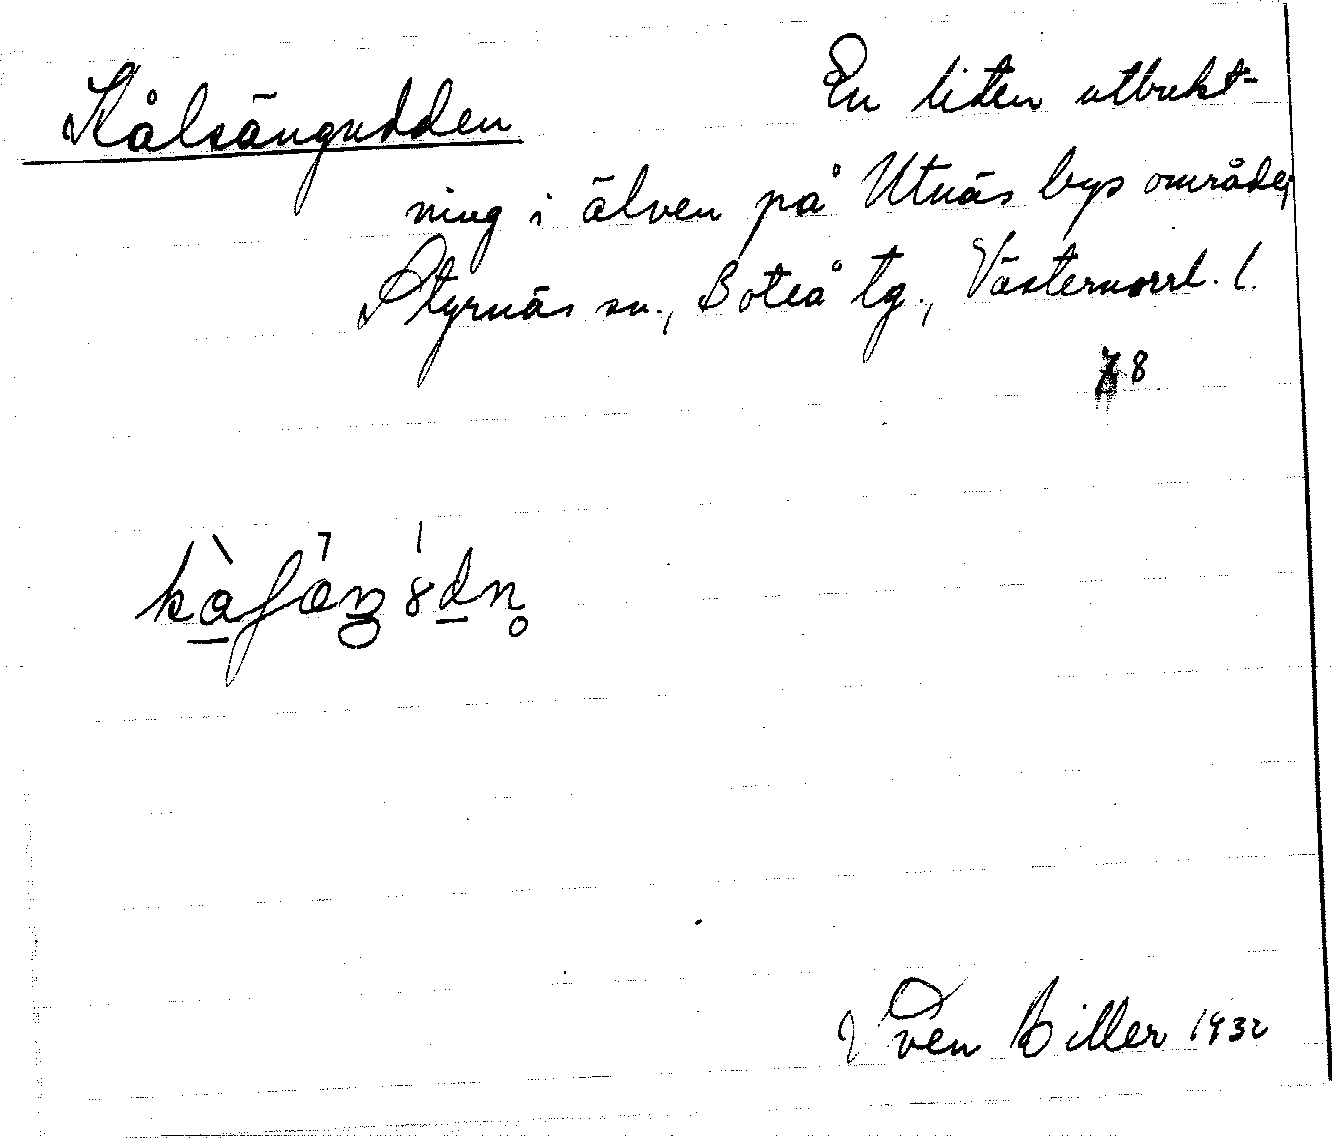 Kålsängudden
En liten utbukt-
ning i älven på Utnäs bys område,
Styrnäs sn., Boteå tg., Västernorrl. l.
8
Sven Biller 1932